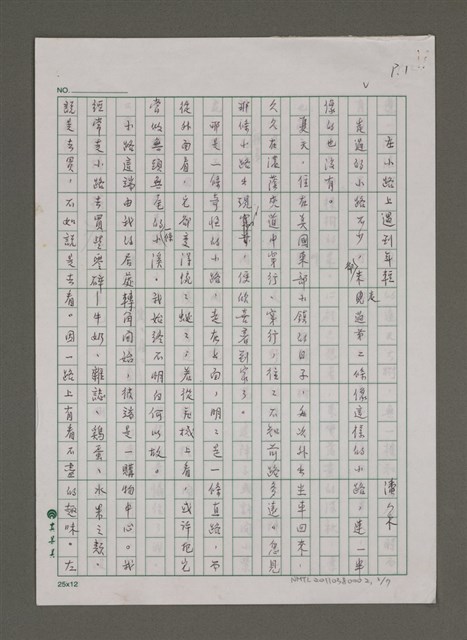 P.1
NO.
在小路上遇到年輕
潘人木
走過的小路不少,卻未曾走過第二條像這樣的小路,連一半
像的也沒有。
夏天,住在美國東部小鎮的日子,每次外出坐車回來,
久久在濃蔭夾道中穿行、穿行,往往不知前路多遠。忽見
那條小路出現,便欣喜著到家了。
那是一條奇怪的小路,走在上面,明明是一條直路,而
從外面看,它卻是浮後的,蜒蜒,若從飛機上看,或許把它
當做無頭無尾的小溪。我始終不明白何以故。
小路這端由我的居處轉角開始,彼端是一購物中心。我
經常走小路去買些零碎—牛奶、雜誌、雞蛋、水果之類,
說是去買,不如說是去看。因一路上有看不盡的趣味。左
25x12
NMTL20110380002, 1/7